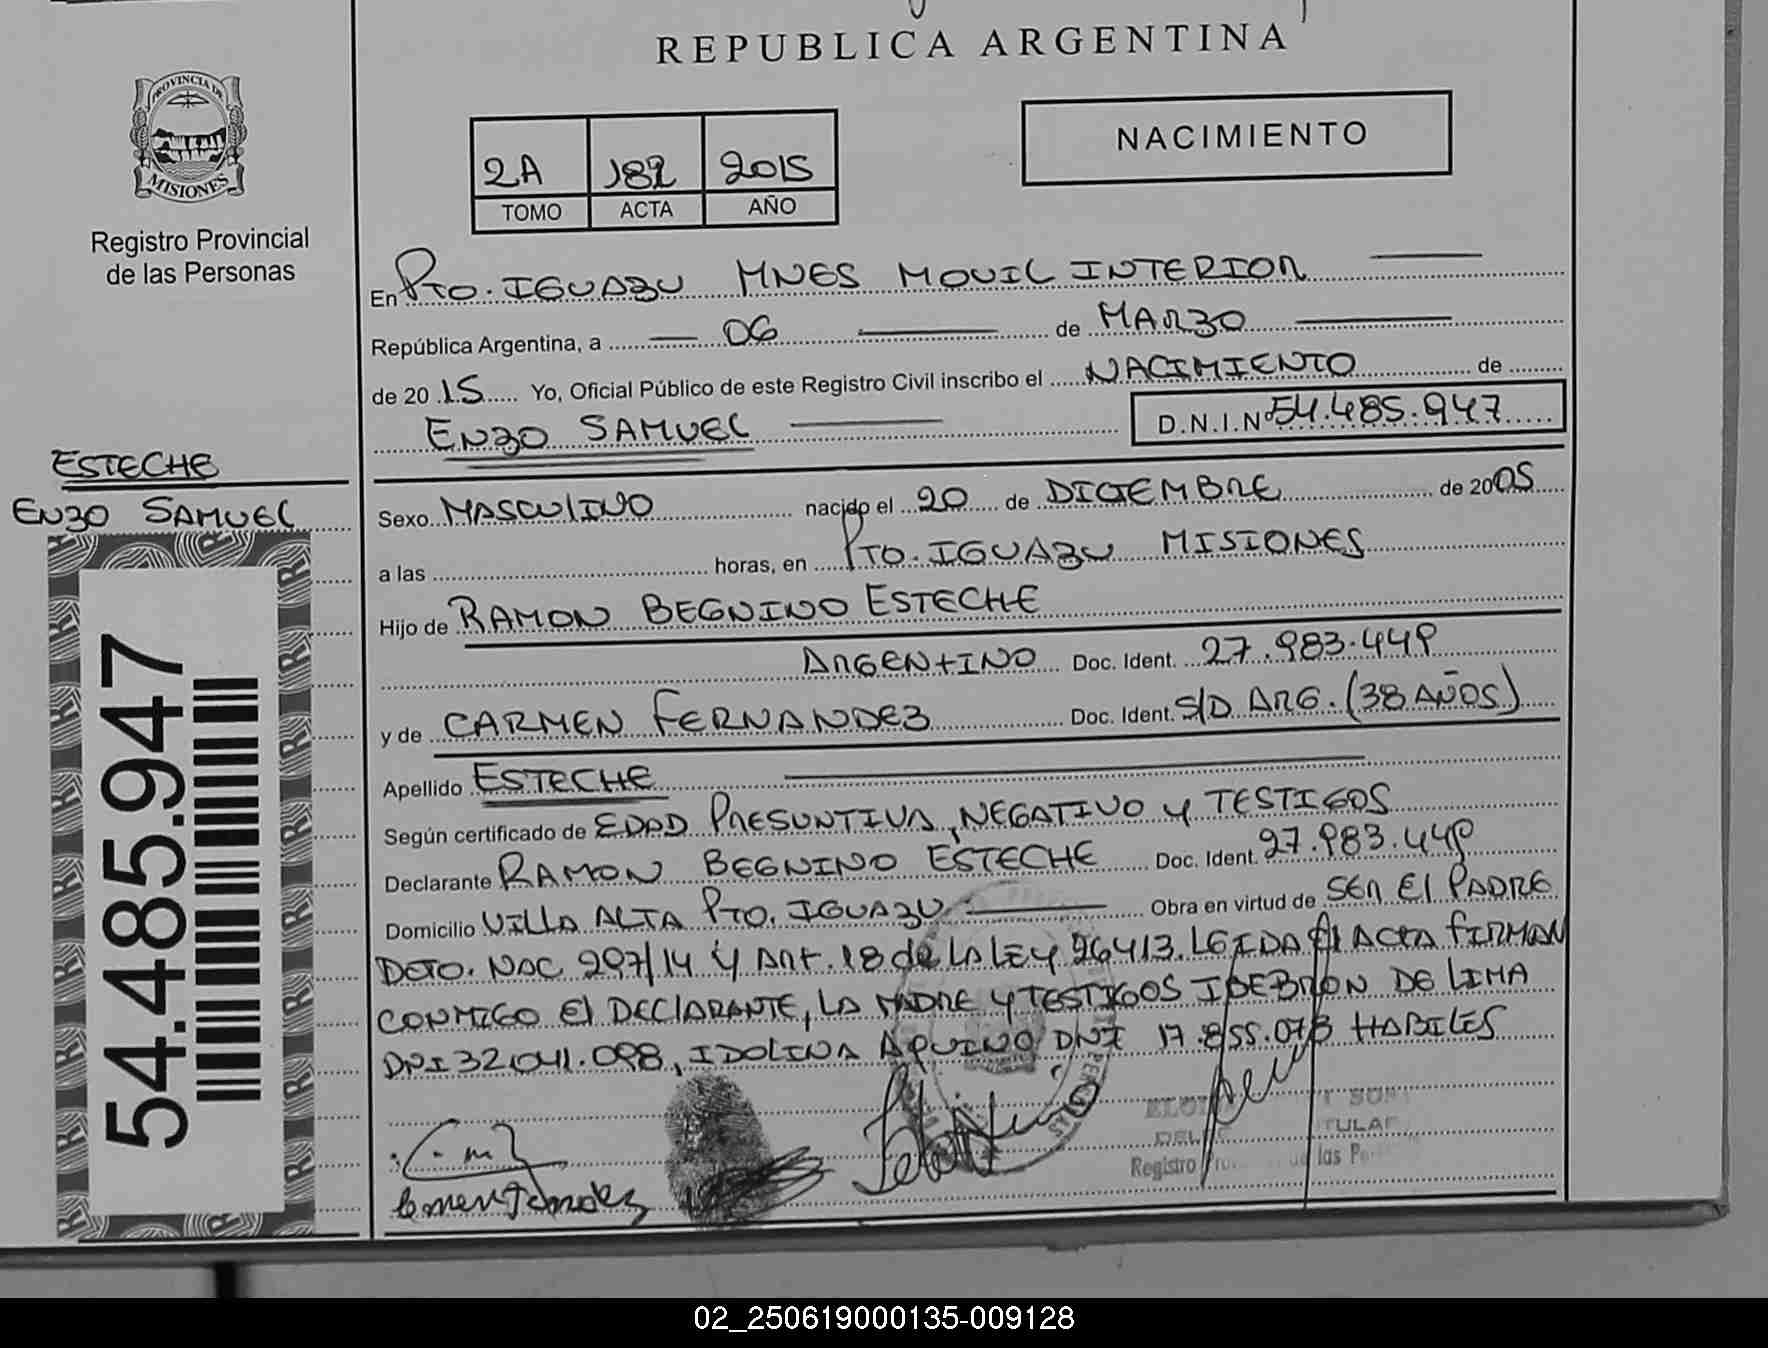 REPUBLICA ARGENTINA
PROVINCIA DE
MISIONES
Registro Provincial
de las Personas
2A 182 2015
TOMO ACTA AÑO
NACIMIENTO
En Pto. IGUAZU MNES MOVIL INTERIOR
República Argentina, a 06 de MARZO
de 2015 Yo, Oficial Público de este Registro Civil inscribo el NACIMIENTO de
ENZO SAMUEL D.N.I.Nº 54.485.947
ESTECHE
ENZO SAMUEL
Sexo MASCULINO nacido el 20 de DICIEMBRE de 2005
a las horas, en PTO. IGUAZU MISIONES
Hijo de RAMON BEGNINO ESTECHE
ARGENTINO Doc. Ident. 27.983.449
y de CARMEN FERNANDEZ Doc. Ident. S/D ARG. (38 AÑOS)
Apellido ESTECHE
Según certificado de EDAD PRESUNTIVA, NEGATIVO y TESTIGOS
Declarante RAMON BEGNINO ESTECHE Doc. Ident. 27.983.449
Domicilio VILLA ALTA PTO. IGUAZU Obra en virtud de SER El PADRE
DCTO. NAC 297/14 Y ART. 18 de LA LEY 26413. LEIDA El ACTA FIRMAN
CONMIGO El DECLARANTE, LA MADRE Y TESTIGOS IDEBRON DE LIMA
DNI 32.041.098, IDOLINA AQUINO DNI 17.855.073 HABILES
54.485.947
Registro las
02_250619000135-009128